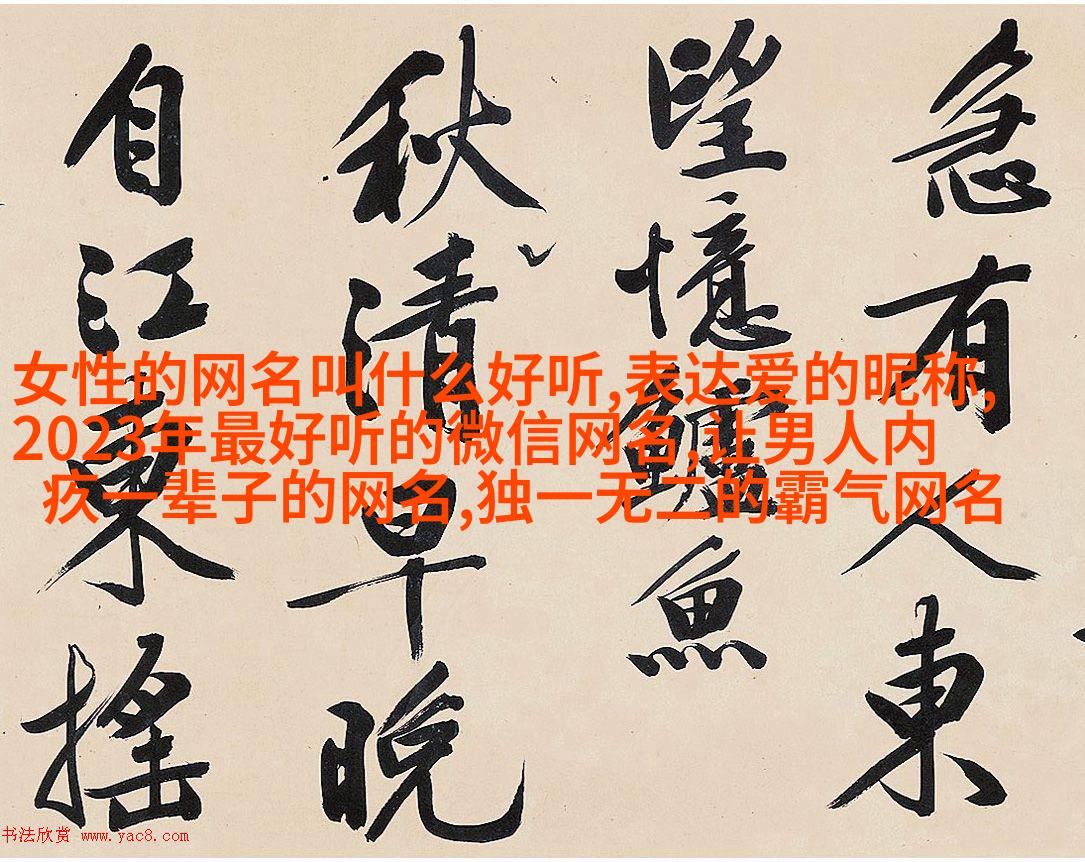 急有人東
望憶鱸魚
秋清早晚
自江東搖
女性的网名叫什么好听,表达爱的昵称,
2023年最好听的微信网名,让男人内
疚一辈子的网名,独一无二的霸气网名
书法欣赏 www.yac8.com